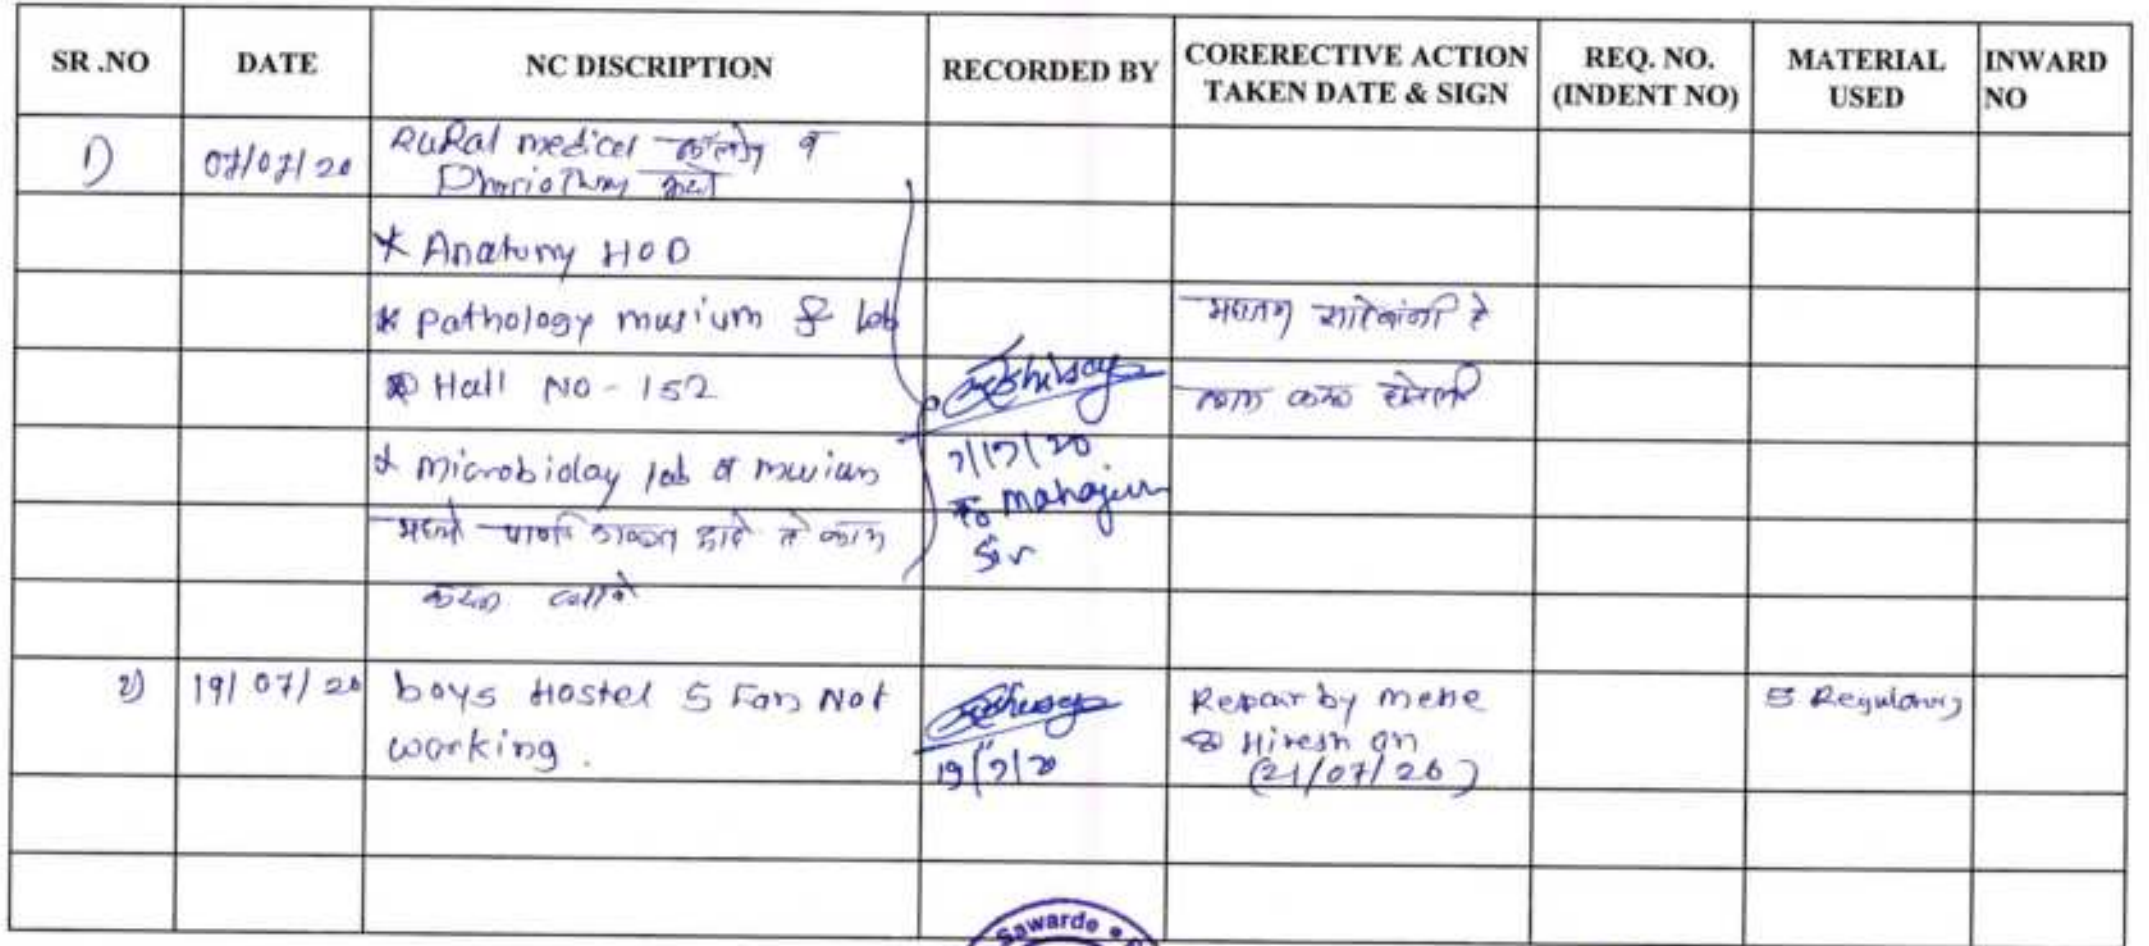 SR .NO DATE NC DISCRIPTION RECORDED BY CORERECTIVE ACTION TAKEN DATE & SIGN REQ. NO. (INDENT NO) MATERIAL USED INWARD NO
1) 07/07/20 RuRal medical कॉलेज व
मध्ये
* Anatomy HOD
* pathology musium & lab
* Hall NO - 152
* microbiolay lab & musium
मध्ये पाणि गळत आहे ते काम
करून
7/7/20
To mahajan
Sir
महाजन साहेबांनी हे
काम करून घेतली
2) 19/07/20 boys Hostel 5 Fan Not
working.
19/7/20
Repair by mene
& Hiresh on
(21/07/20)
5 Regulator
Sawarde